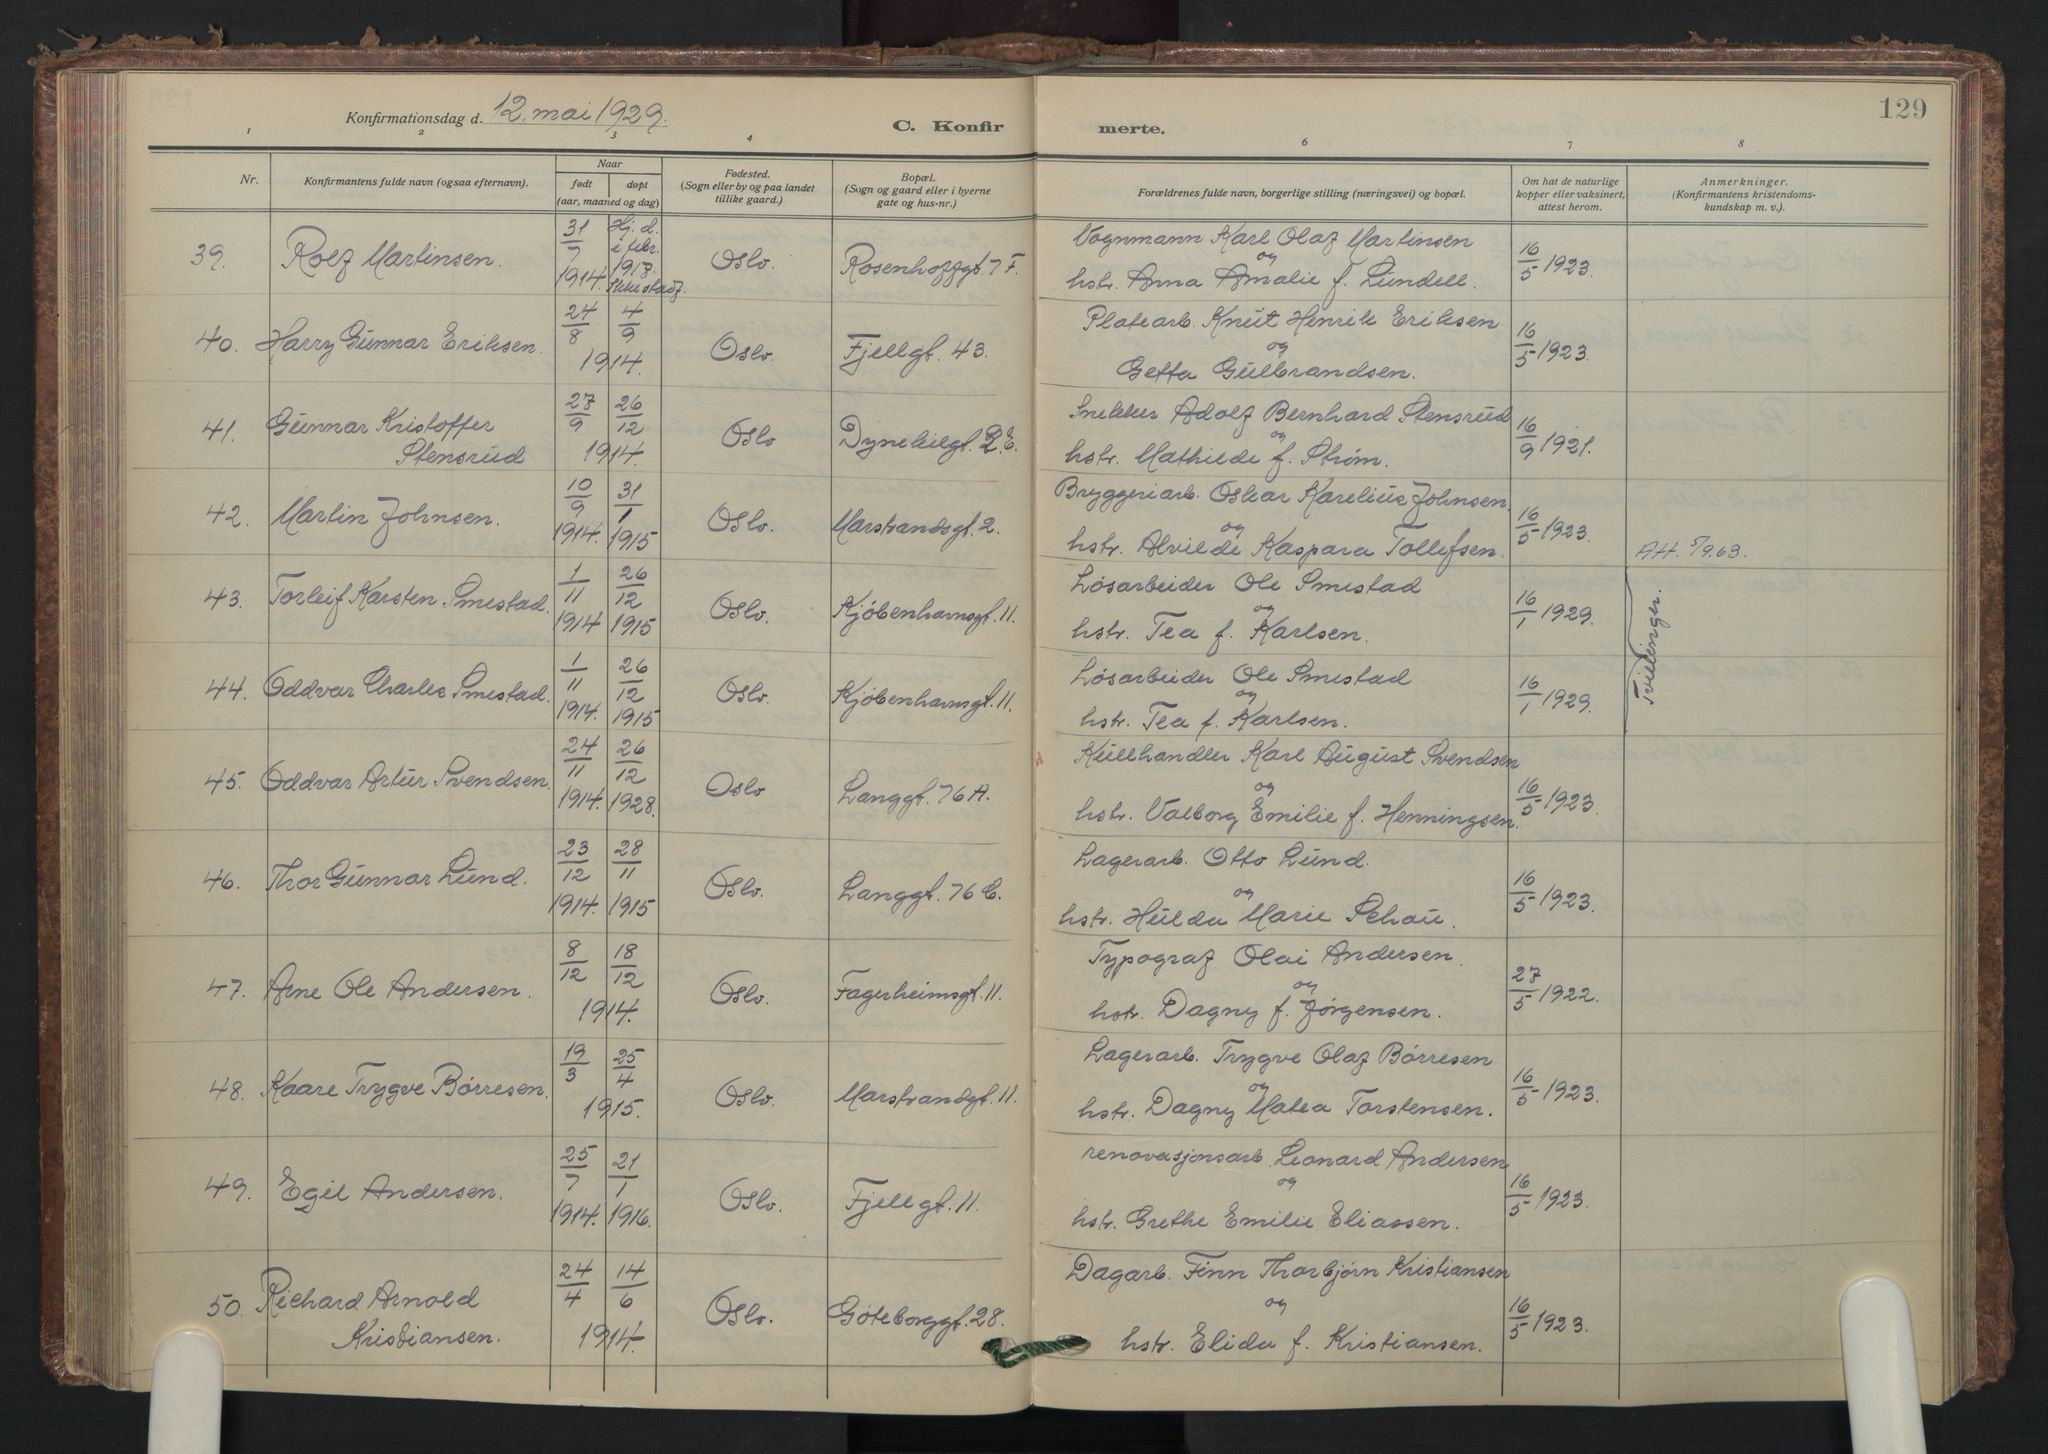 129
Konfirmationsdag d. 12. mai 1929.
C. Konfir merte.
1 2 3 4 6 7 8
Nr. Konfirmantens fulde navn (ogsaa efternavn). Naar født døpt (aar, maaned og dag) Fødested. (Sogn eller by og paa landet tillike gaard.) Bopæl. (Sogn og gaard eller i byerne gate og hus-nr.) Forældrenes fulde navn, borgerlige stilling (næringsvei) og bopæl. Om hat de naturlige kopper eller vaksinert, attest herom. Anmerkninger. (Konfirmantens kristendoms-kundskap m. v.).
39. Rolf Martinsen. 31/7 1914. Hj. d. i febr. 1917. Oslo. Rosenhoffgt. 7 F. Vognmann Karl Olaf Martinsen og hstr. Anna Amalie f. Lundell. 16/5 1923.
40. Harry Gunnar Eriksen. 24/8 4/9 1914. Oslo. Fjellgt. 43. Platearb. Knut Henrik Eriksen og Getta Gulbrandsen. 16/5 1923.
41. Gunnar Kristoffer Stensrud 27/9 26/12 1914. Oslo Dynekilgt. 2 E. Snekker Adolf Bernhard Stensrud og hstr. Mathilde f. Strøm. 16/9 1921.
42. Martin Johnsen. 10/9 1914. 31/1 1915 Oslo. Marstrandsgt. 2. Bryggeriarb. Oskar Karelius Johnsen, og hstr. Alvilde Kaspara Tollefsen. 16/5 1923. A.H. 5/9.63.
43. Torleif Karsten Smestad. 1/11 1914 26/12 1915 Oslo. Kjøbenhavnsgt. 11. Løsarbeider Ole Smestad og hstr. Tea f. Karlsen. 16/1 1929. Tvillinger.
44. Oddvar Charles Smestad. 1/11 1914. 26/12 1915 Oslo. Kjøbenhavnsgt. 11. Løsarbeider Ole Smestad og hstr. Tea f. Karlsen. 16/1 1929.
45. Oddvar Artur Svendsen. 24/11 1914. 26/12 1928. Oslo Langgt. 76 A. Kullhandler Karl August Svendsen og hstr. Valborg Emilie f. Henningsen. 16/5 1923.
46. Thor Gunnar Lund. 23/12 1914. 28/11 1915 Oslo. Langgt. 76 C. Lagerarb. Otto Lund. og hstr. Hulda Marie Schau. 16/5 1923.
47. Arne Ole Andersen. 8/12 18/12 1914. Oslo. Fagerheimsgt. 11. Typograf Olai Andersen. og hstr. Dagny f. Jørgensen. 27/5 1922.
48. Kaare Trygve Børresen. 19/3 25/4 1915. Oslo. Marstrandgt. 11. Lagerarb. Trygve Olaf Børresen og hstr. Dagny Matea Torstensen. 16/5 1923.
49. Egil Andersen. 25/7 1914. 21/1 1916. Oslo. Fjellgt. 11. renovasjonsarb. Leonard Andersen og hstr. Grethe Emilie Eliassen. 16/5 1923.
50. Richard Arnold Kristiansen. 24/4 14/6 1914. Oslo. Gøteborggt. 28. Dagarb. Finn Thorbjørn Kristiansen og hstr. Elida f. Kristiansen. 16/5 1923.